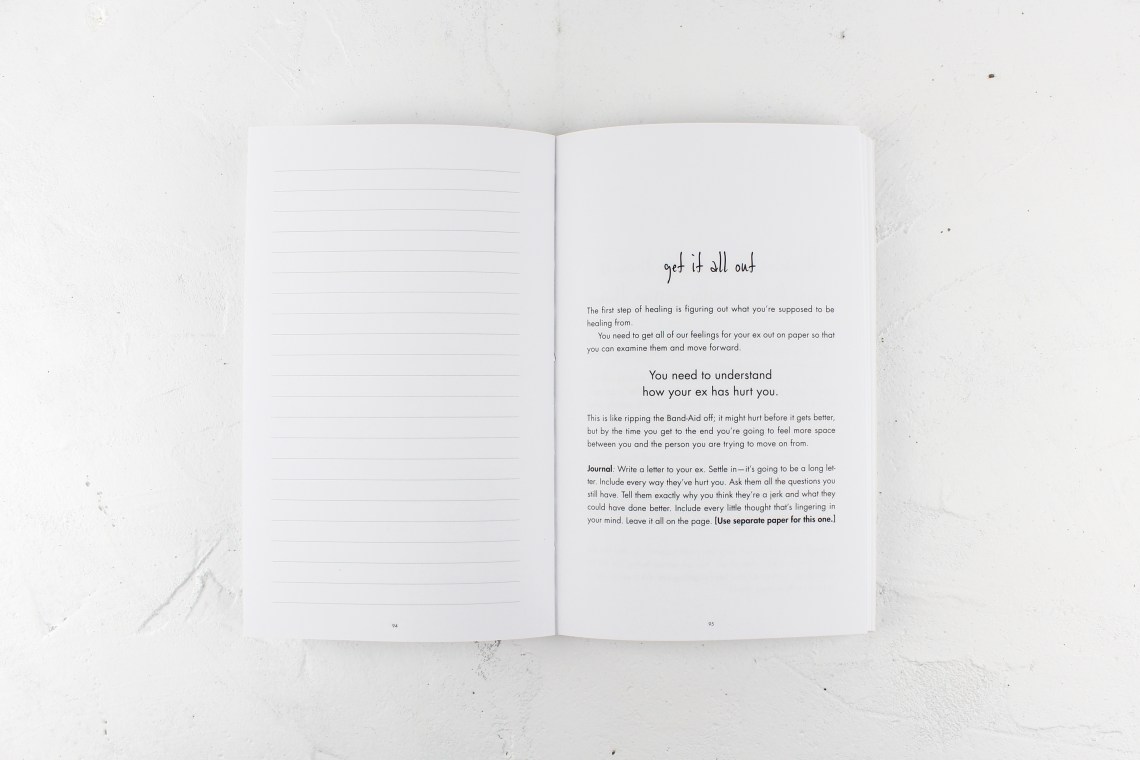 94
get it all out
The first step of healing is figuring out what you're supposed to be
healing from.
You need to get all of our feelings for your ex out on paper so that
you can examine them and move forward.
You need to understand
how your ex has hurt you.
This is like ripping the Band-Aid off; it might hurt before it gets better,
but by the time you get to the end you're going to feel more space
between you and the person you are trying to move on from.
Journal: Write a letter to your ex. Settle in—it's going to be a long let-
ter. Include every way they've hurt you. Ask them all the questions you
still have. Tell them exactly why you think they're a jerk and what they
could have done better. Include every little thought that's lingering in
your mind. Leave it all on the page. [Use separate paper for this one.]
95